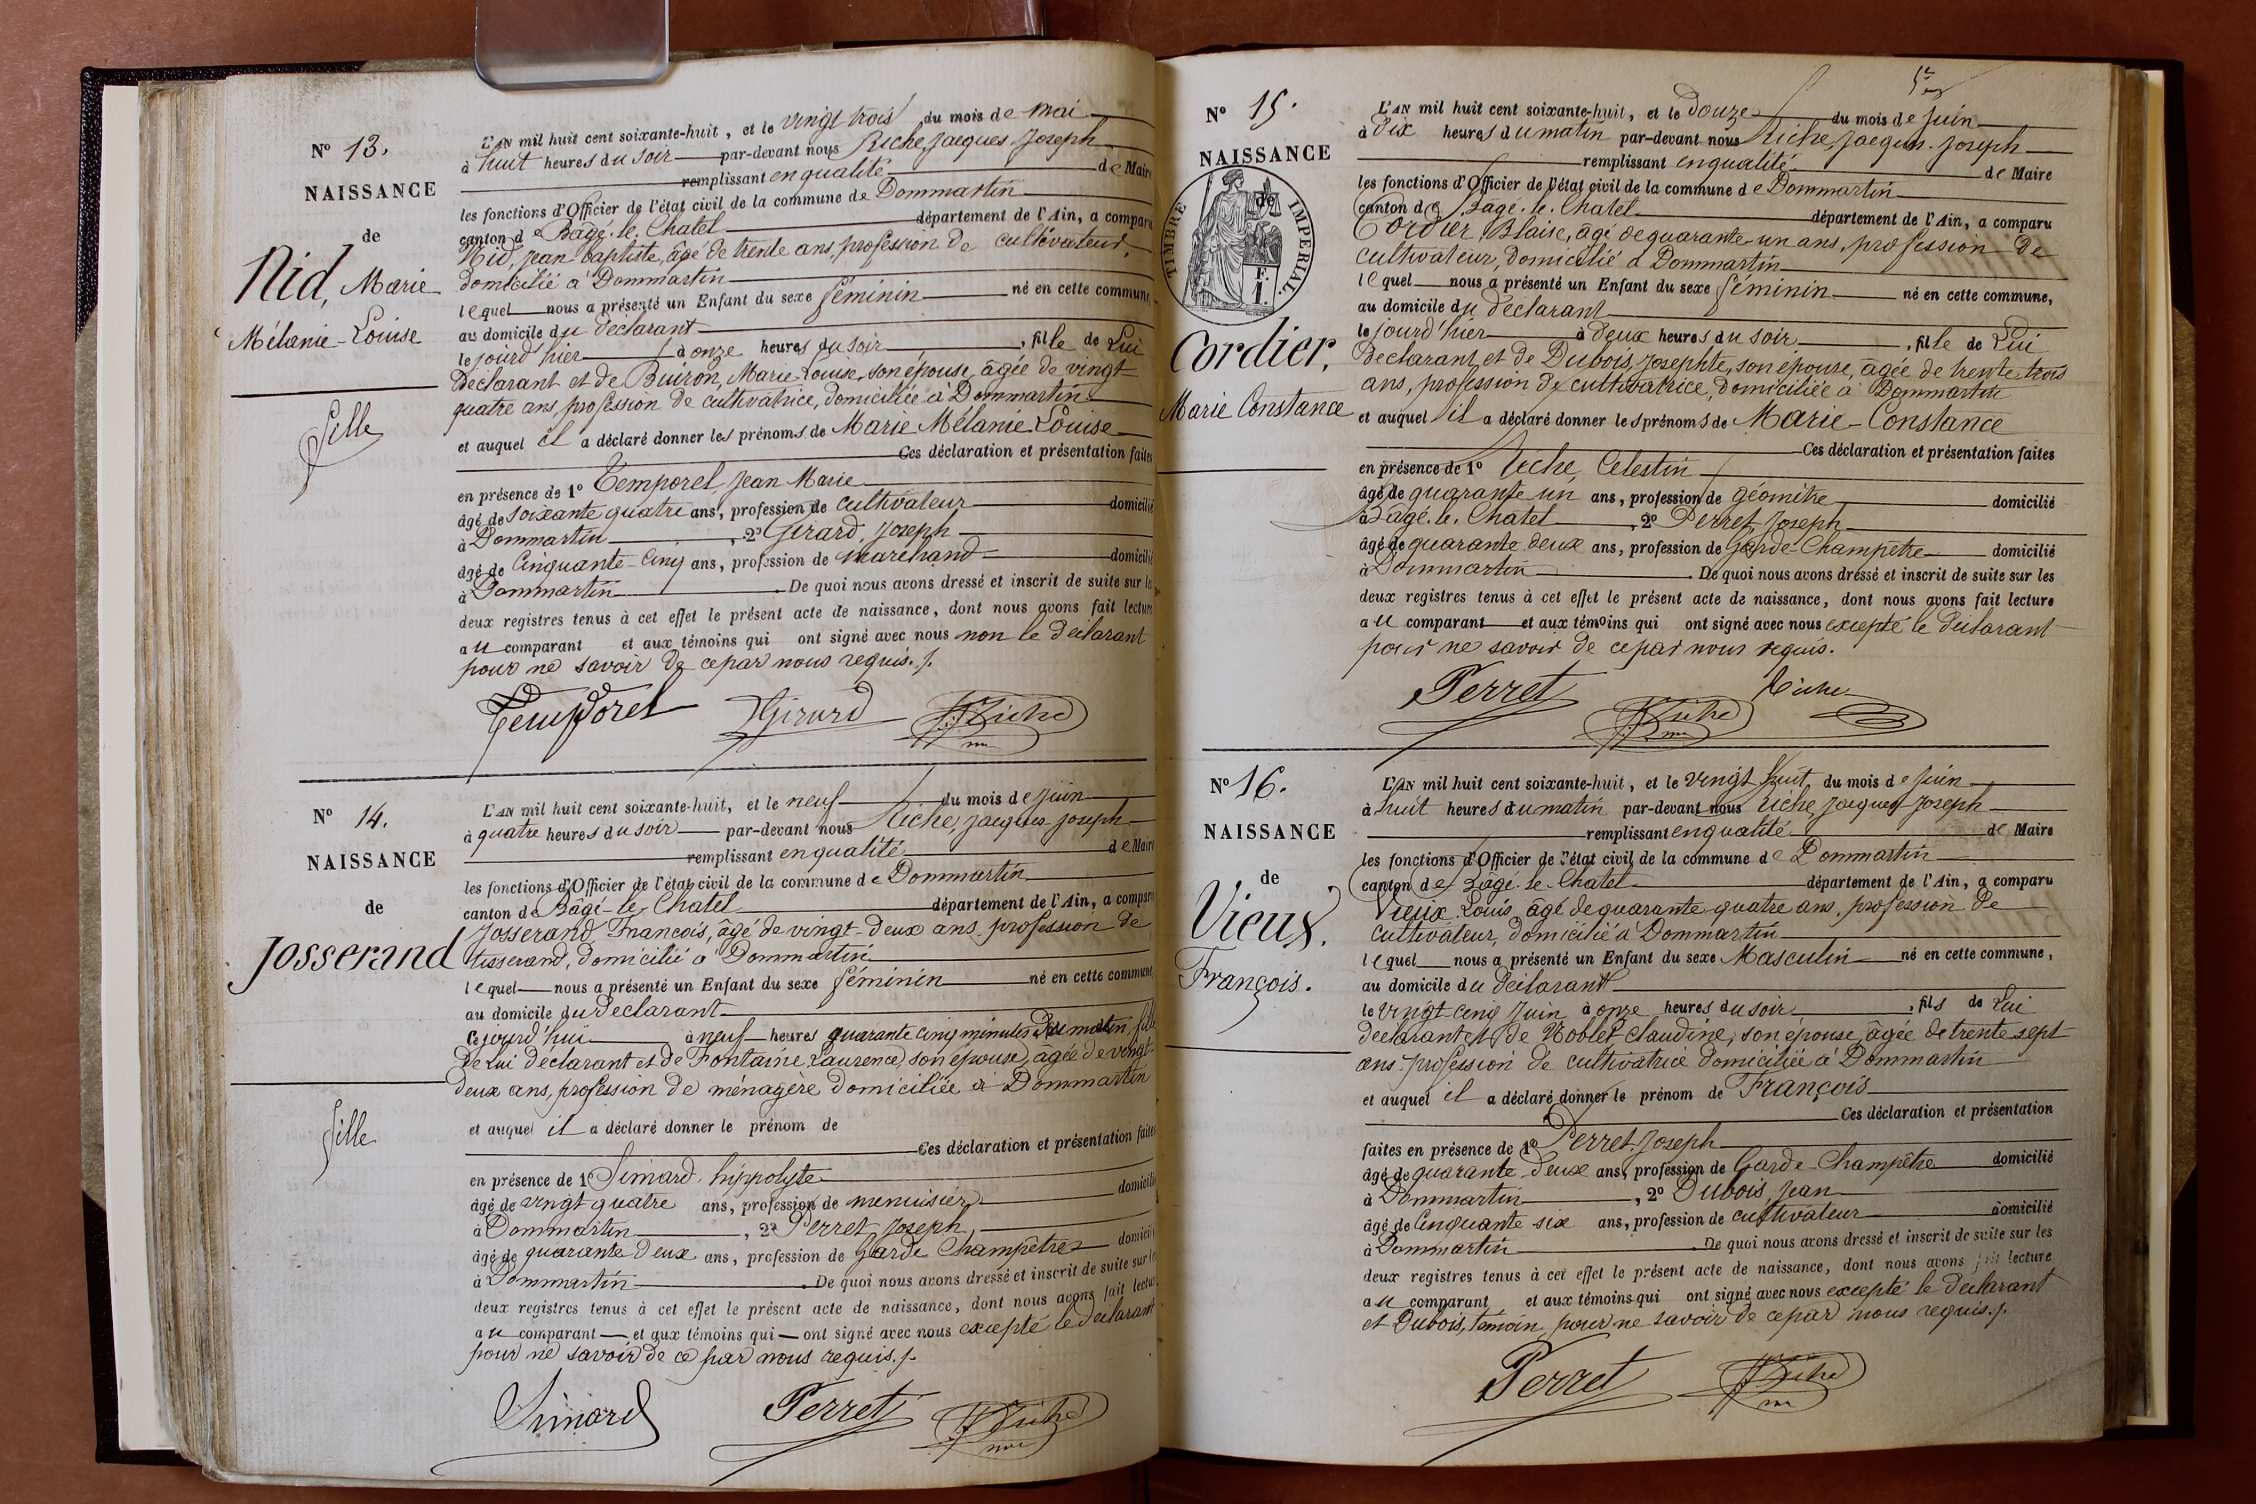 Nº 13.
NAISSANCE
de
Nid, Marie
Mélanie-Louise
fille
L'AN mil huit cent soixante-huit, et le vingt trois du mois de mai
à huit heures du soir par-devant nous Riche, Jacques Joseph
remplissant en qualité de Maire
les fonctions d'Officier de l'état civil de la commune de Dommartin
canton de Bâgé-le-Chatel département de l'Ain, a comparu
Nid, Jean-Baptiste, âgé de trente ans, profession de cultivateur,
domicilié à Dommartin
lequel nous a présenté un Enfant du sexe féminin né en cette commune,
au domicile du déclarant
le jourd'hier à onze heures du soir, fille de Lui
déclarant et de Buiron, Marie Louise, son épouse, âgée de vingt-
quatre ans, profession de cultivatrice, domiciliée à Dommartin
et auquel il a déclaré donner les prénoms de Marie Mélanie Louise
Ces déclaration et présentation faites
en présence de 1º Temporel Jean Marie
âgé de soixante quatre ans, profession de cultivateur domicilié
à Dommartin, 2º Girard, Joseph
âgé de Cinquante-Cinq ans, profession de marchand domicilié
à Dommartin. De quoi nous avons dressé et inscrit de suite sur le
deux registres tenus à cet effet le présent acte de naissance, dont nous avons fait lecture
au comparant et aux témoins qui ont signé avec nous non le déclarant
pour ne savoir de ce par nous requis./.
Temporel Girard Riche
Nº 14.
NAISSANCE
de
Josserand
fille
L'AN mil huit cent soixante-huit, et le neuf du mois de Juin
à quatre heures du soir par-devant nous Riche, Jacques Joseph
remplissant en qualité de Maire
les fonctions d'Officier de l'état civil de la commune de Dommartin
canton de Bâgé-le-Chatel département de l'Ain, a comparu
Josserand François, âgé de vingt-deux ans, profession de
tisserand, domicilié à Dommartin
lequel nous a présenté un Enfant du sexe féminin né en cette commune
au domicile du déclarant
cejourd'hui à neuf heures quarante cinq minutes du matin, fille
de Lui déclarant et de Fontaine Laurence, son épouse, âgée de vingt-
deux ans, profession de ménagère domiciliée à Dommartin
et auquel il a déclaré donner le prénom de
Ces déclaration et présentation faites
en présence de 1º Simard hippolyte
âgé de vingt quatre ans, profession de menuisier domicilié
à Dommartin, 2º Perret, Joseph,
âgé de quarante deux ans, profession de Garde Champêtre domicilié
à Dommartin. De quoi nous avons dressé et inscrit de suite sur le
deux registres tenus à cet effet le présent acte de naissance, dont nous avons fait lecture
au comparant et aux témoins qui ont signé avec nous excepté le déclarant
pour ne savoir de ce par nous requis./.
Simard Perret Riche
Nº 15.
NAISSANCE
de
TIMBRE IMPERIAL.
F.
1
Cordier,
Marie Constance
L'AN mil huit cent soixante-huit, et le douze du mois de Juin
à dix heures du matin par-devant nous Riche, Jacques-Joseph
remplissant en qualité de Maire
les fonctions d'Officier de l'état civil de la commune de Dommartin
canton de Bagé-le-Chatel département de l'Ain, a comparu
Cordier, Blaise, âgé de quarante-un ans, profession de
cultivateur, domicilié à Dommartin
lequel nous a présenté un Enfant du sexe féminin né en cette commune,
au domicile du déclarant
le jourd'hier à deux heures du soir, fille de Lui
déclarant, et de Dubois, Josephte, son épouse, âgée de trente-trois
ans, profession de cultivatrice, domiciliée à Dommartin
et auquel il a déclaré donner les prénoms de Marie-Constance
Ces déclaration et présentation faites
en présence de 1º Riche, Celestin
âgé de quarante un ans, profession de géomètre domicilié
à Bagé-le-Chatel, 2º Perret Joseph
âgé de quarante deux ans, profession de Garde-Champêtre domicilié
à Dommartin. De quoi nous avons dressé et inscrit de suite sur les
deux registres tenus à cet effet le présent acte de naissance, dont nous avons fait lecture
au comparant et aux témoins qui ont signé avec nous excepté le déclarant
pour ne savoir de ce par nous requis.
Perret Riche Riche
Nº 16.
NAISSANCE
de
Vieux,
François.
L'AN mil huit cent soixante-huit, et le vingt huit du mois de Juin
à huit heures du matin par-devant nous Riche, Jacques Joseph
remplissant en qualité de Maire
les fonctions d'Officier de l'état civil de la commune de Dommartin
canton de Bâgé-le-Chatel département de l'Ain, a comparu
Vieux Louis âgé de quarante quatre ans, profession de
cultivateur, domicilié à Dommartin
lequel nous a présenté un Enfant du sexe Masculin né en cette commune,
au domicile du déclarant
le vingt cinq Juin à onze heures du soir, fils de Lui
déclarant et de Noblet Claudine, son épouse, âgée de trente sept
ans profession de cultivatrice domiciliée à Dommartin
et auquel il a déclaré donner le prénom de François
Ces déclaration et présentation
faites en présence de 1º Perret Joseph
âgé de quarante deux ans, profession de Garde Champêtre domicilié
à Dommartin, 2º Dubois, Jean
âgé de Cinquante six ans, profession de cultivateur domicilié
à Dommartin. De quoi nous avons dressé et inscrit de suite sur les
deux registres tenus à cet effet le présent acte de naissance, dont nous avons fait lecture
au comparant et aux témoins qui ont signé avec nous excepté le déclarant
et Dubois, témoin, pour ne savoir de ce par nous requis./.
Perret Riche